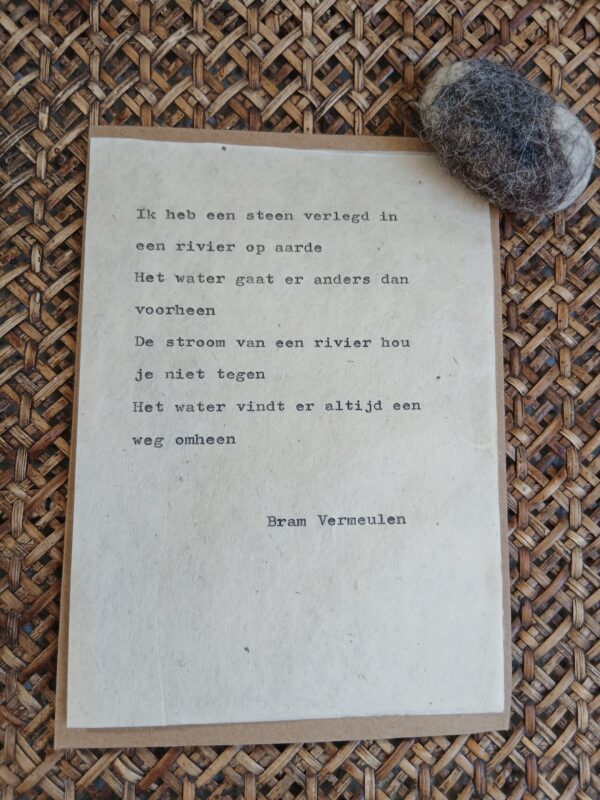 Ik heb een steen verlegd in
een rivier op aarde
Het water gaat er anders dan
voorheen
De stroom van een rivier hou
je niet tegen
Het water vindt er altijd een
weg omheen
Bram Vermeulen